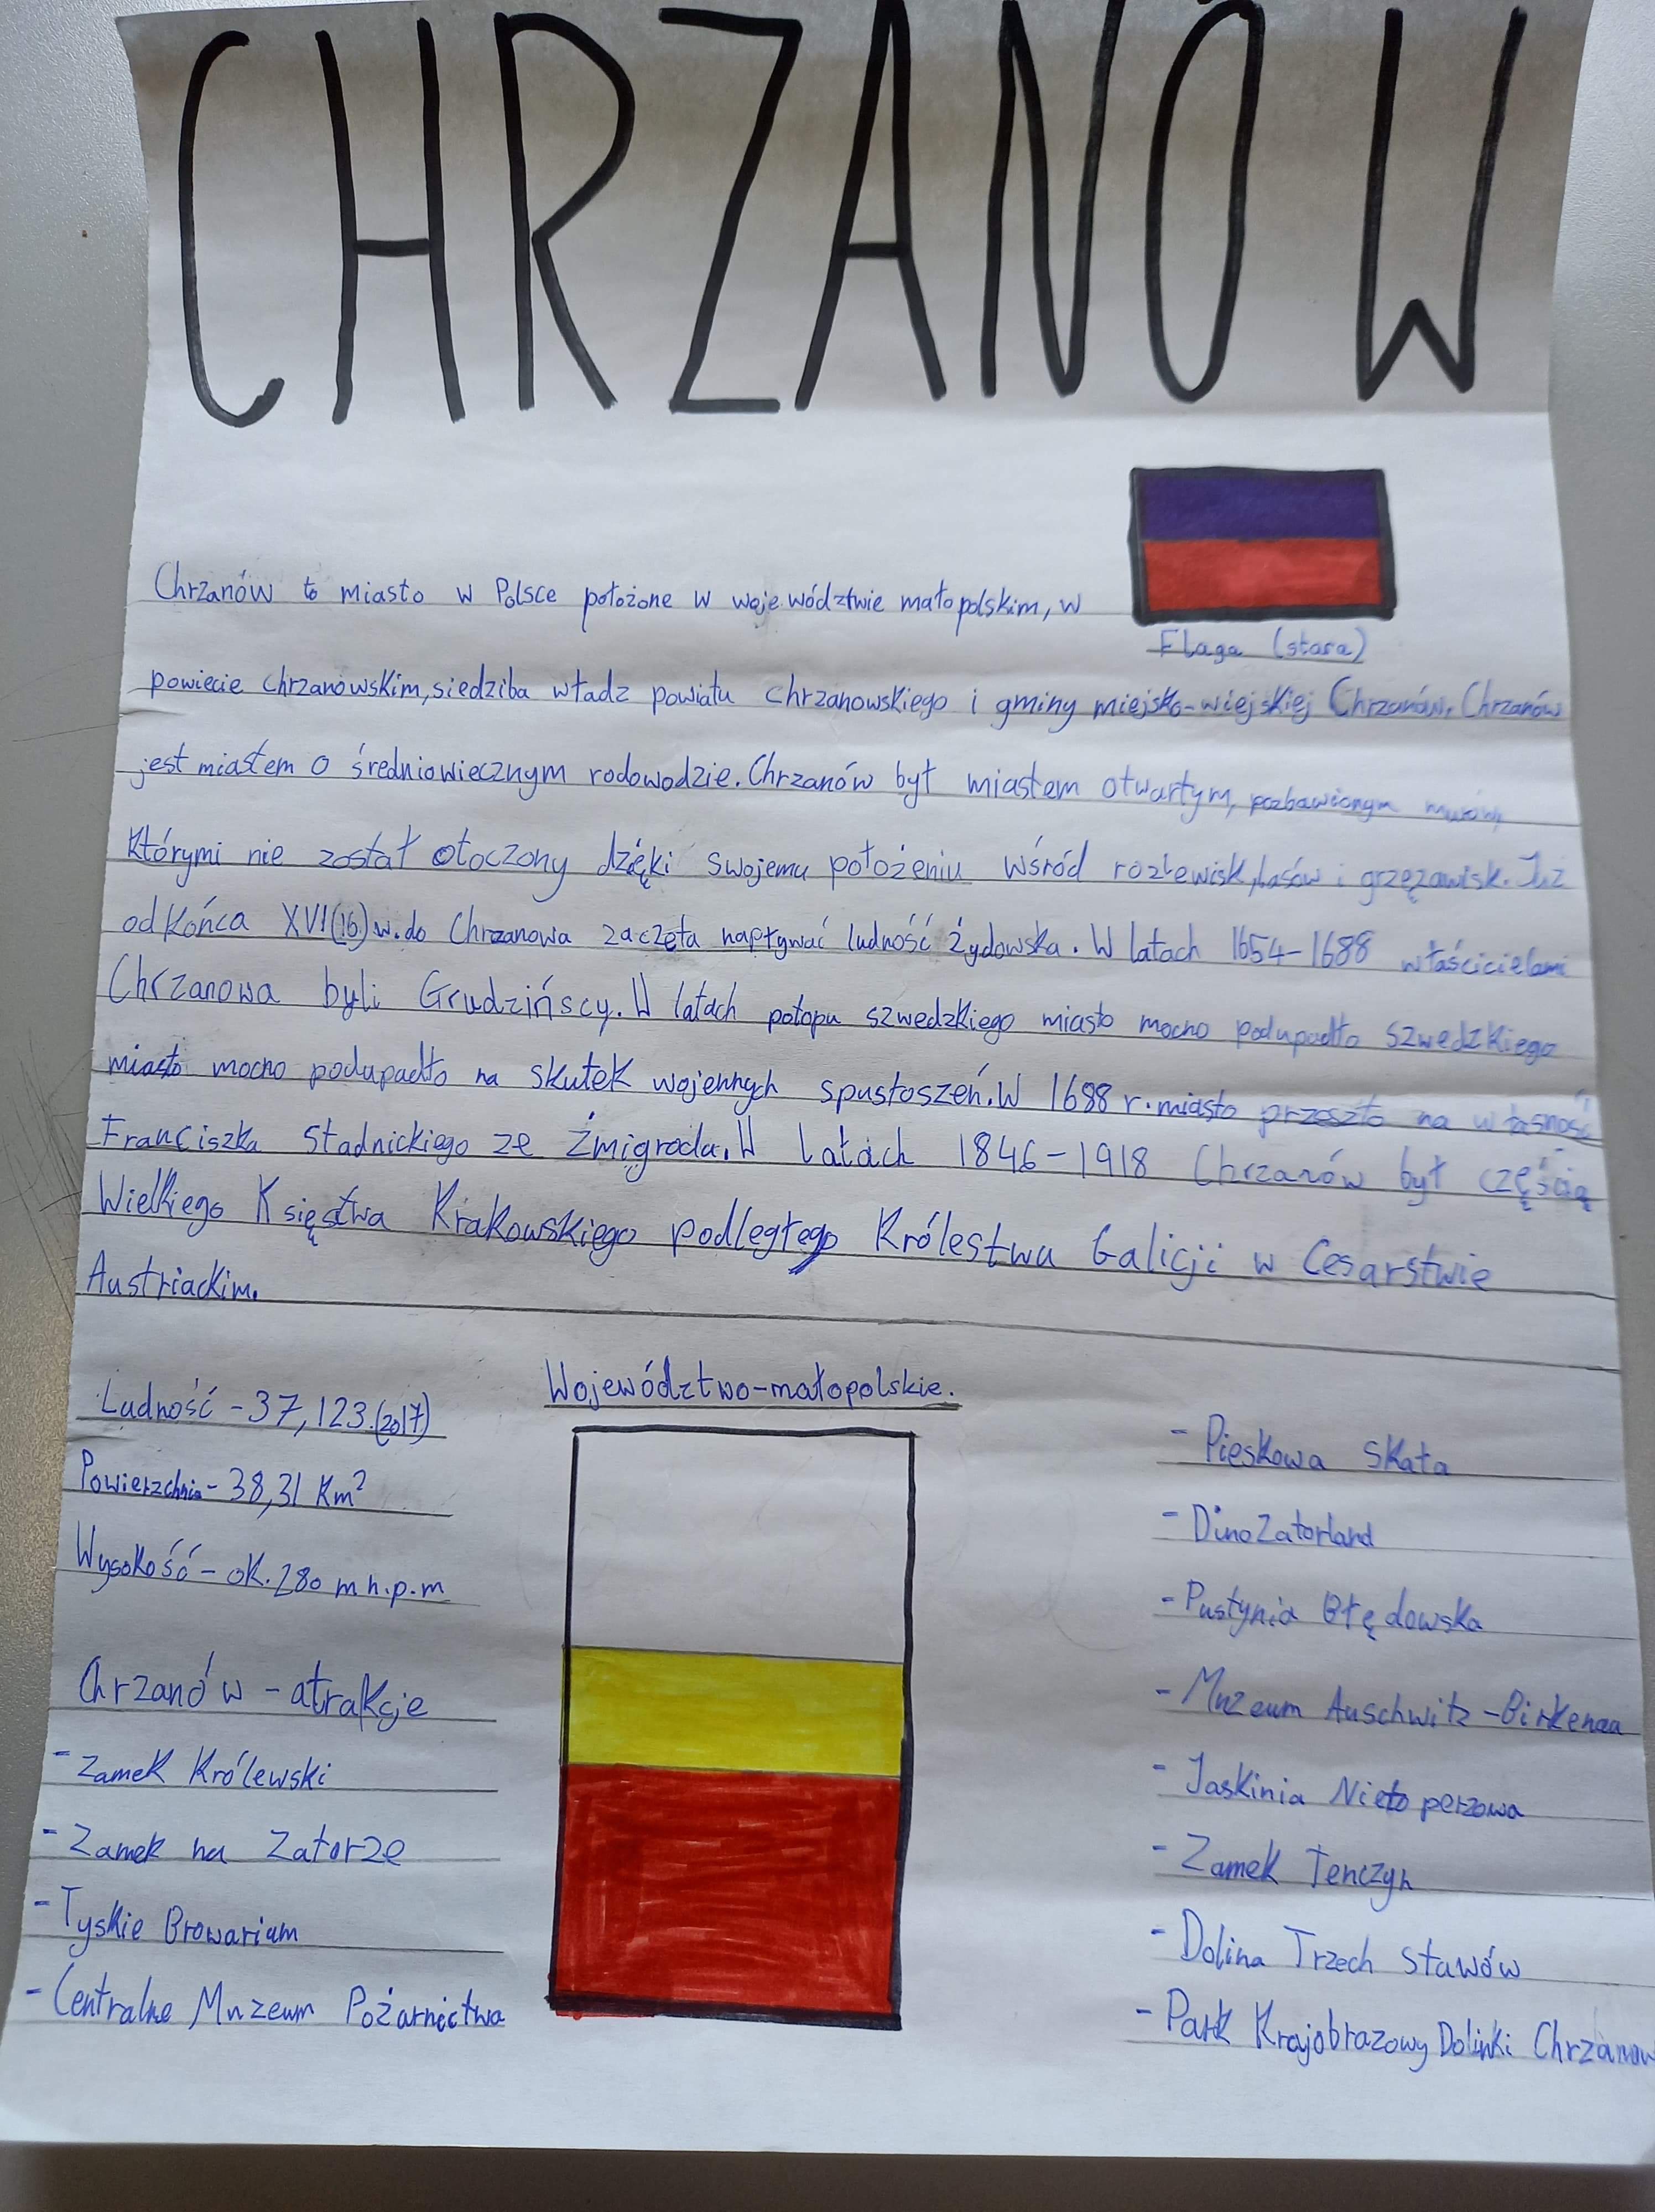 CHRZANÓW
Flaga (stara)
Chrzanów to miasto w Polsce położone w województwie małopolskim, w
powiecie chrzanowskim, siedziba władz powiatu chrzanowskiego i gminy miejsko-wiejskiej Chrzanów. Chrzanów
jest miastem o średniowiecznym rodowodzie. Chrzanów był miastem otwartym, pozbawionym murów,
którymi nie został otoczony dzięki swojemu położeniu wśród rozlewisk, lasów i grzęzawisk. Już
od końca XVI (16) w. do Chrzanowa zaczęła napływać ludność żydowska. W latach 1654-1688 właścicielami
Chrzanowa byli Grudzińscy. W latach potopu szwedzkiego miasto mocno podupadło szwedzkiego
miasto mocno podupadło na skutek wojennych spustoszeń. W 1688 r. miasto przeszło na własność
Franciszka Stadnickiego ze Żmigroda. W latach 1846-1918 Chrzanów był częścią
Wielkiego Księstwa Krakowskiego podległego Królestwu Galicji w Cesarstwie
Austriackim.
Ludność - 37,123.(2017)
Powierzchnia - 38,31 Km²
Wysokość - ok. 280 m n.p.m
Chrzanów - atrakcje
- Zamek Królewski
- Zamek na Zatorze
- Tyskie Browarium
- Centralne Muzeum Pożarnictwa
Województwo-małopolskie.
- Pieskowa Skała
- DinoZatorland
- Pustynia Błędowska
- Muzeum Auschwitz-Birkenau
- Jaskinia Nietoperzowa
- Zamek Tenczyn
- Dolina Trzech Stawów
- Park Krajobrazowy Dolinki Chrzanow